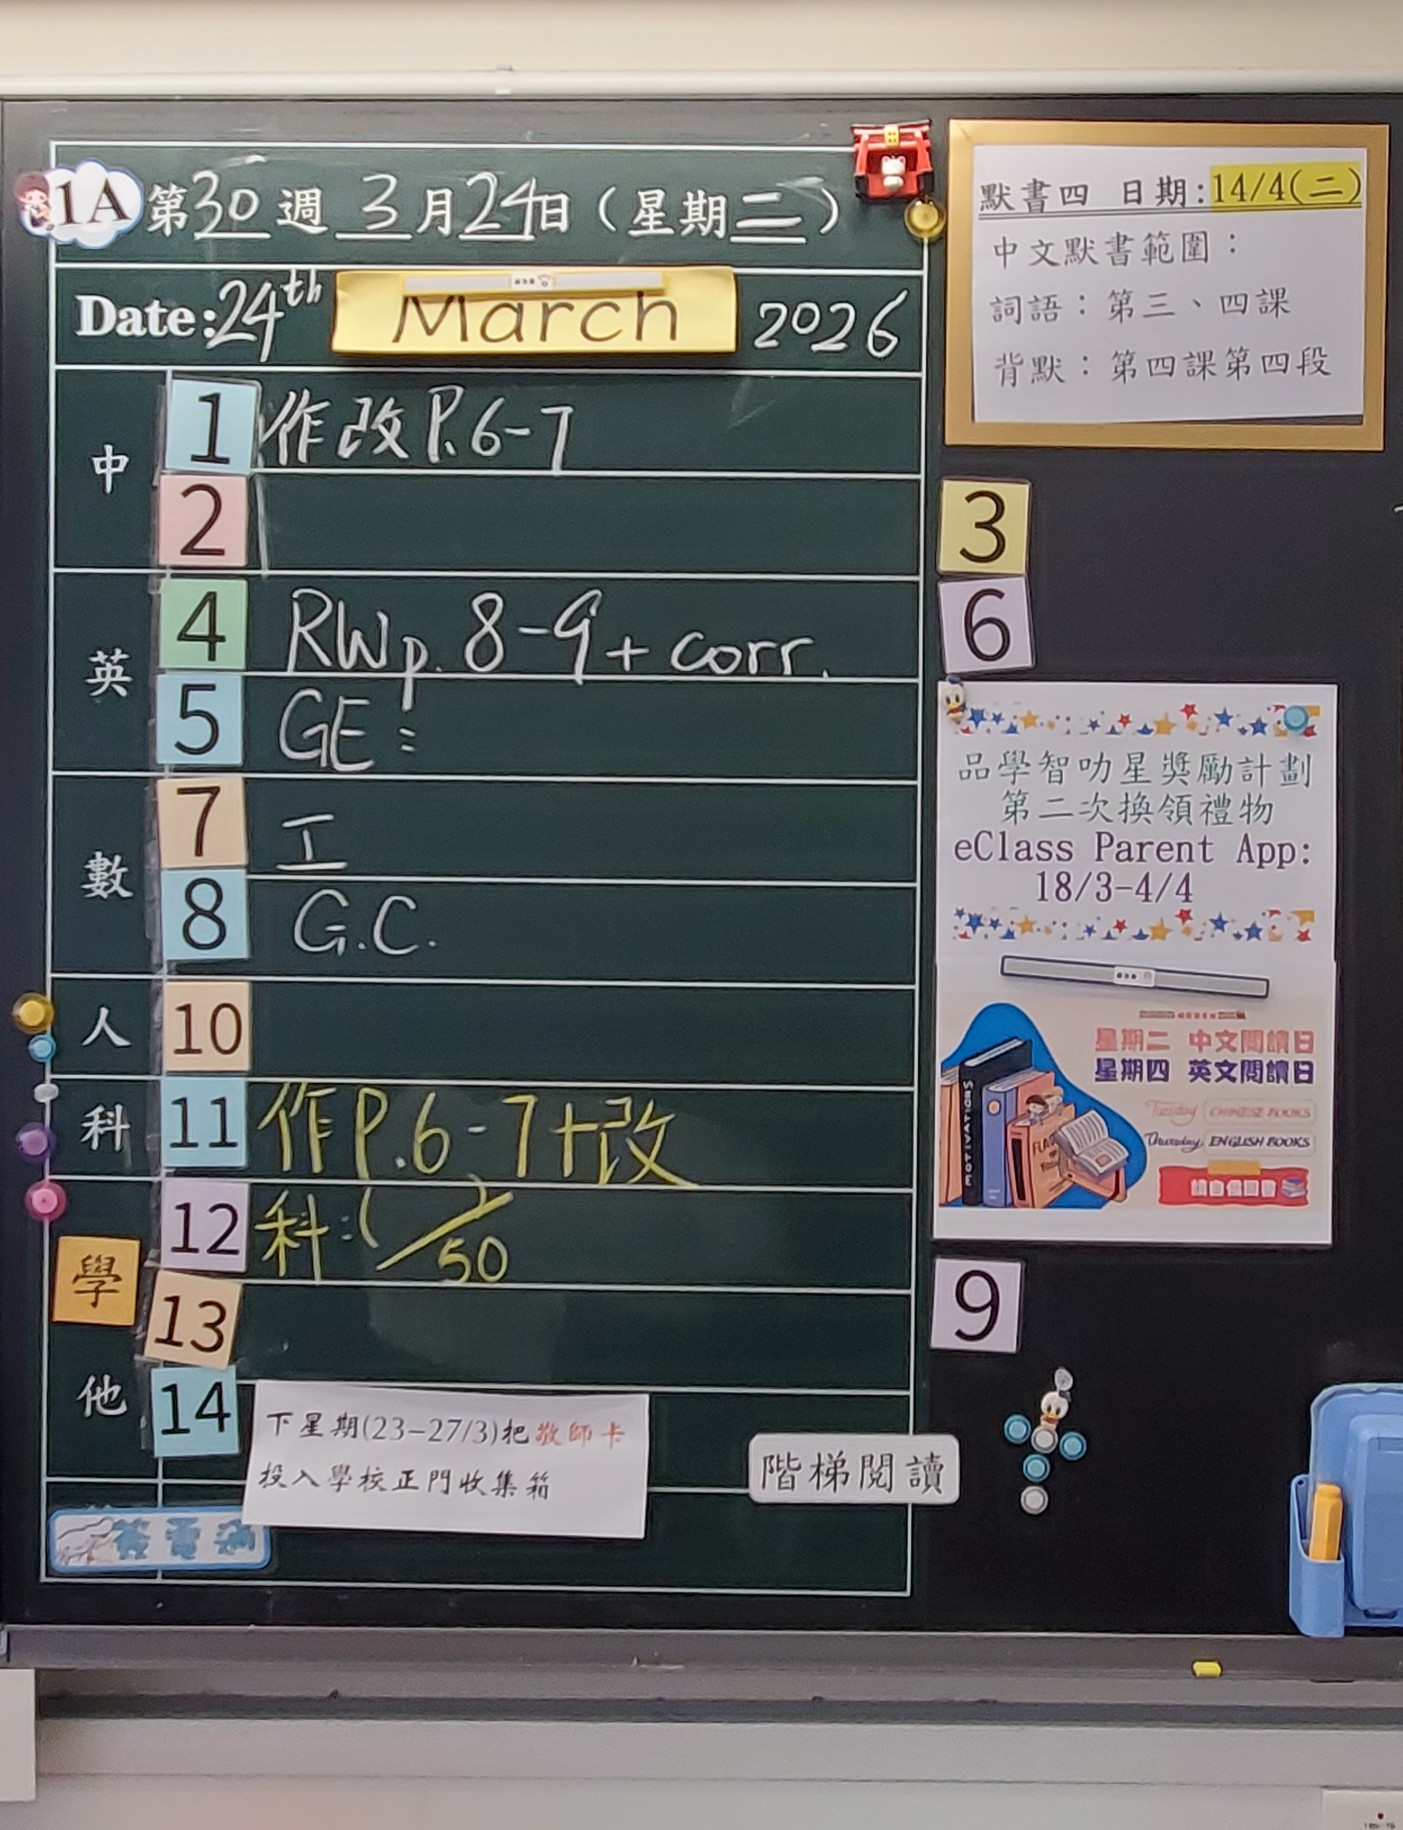 1A 第30週 3月24日（星期二）
Date: 24th March 2026
中
1 作改P.6-7
2
英
4 RWp. 8-9 + corr.
5 GE:
數
7 工
8 G.C.
人 10
科 11 作P.6-7+改
12 科:( )/50
學
13
他
14 下星期(23-27/3)把敬師卡
投入學校正門收集箱
階梯閱讀
簽電通
默書四 日期:14/4(二)
中文默書範圍：
詞語：第三、四課
背默：第四課第四段
3
6
品學智叻星獎勵計劃
第二次換領禮物
eClass Parent App:
18/3-4/4
星期二 中文閱讀日
星期四 英文閱讀日
Tuesday CHINESE BOOKS
Thursday ENGLISH BOOKS
MOTIVATIONS
9